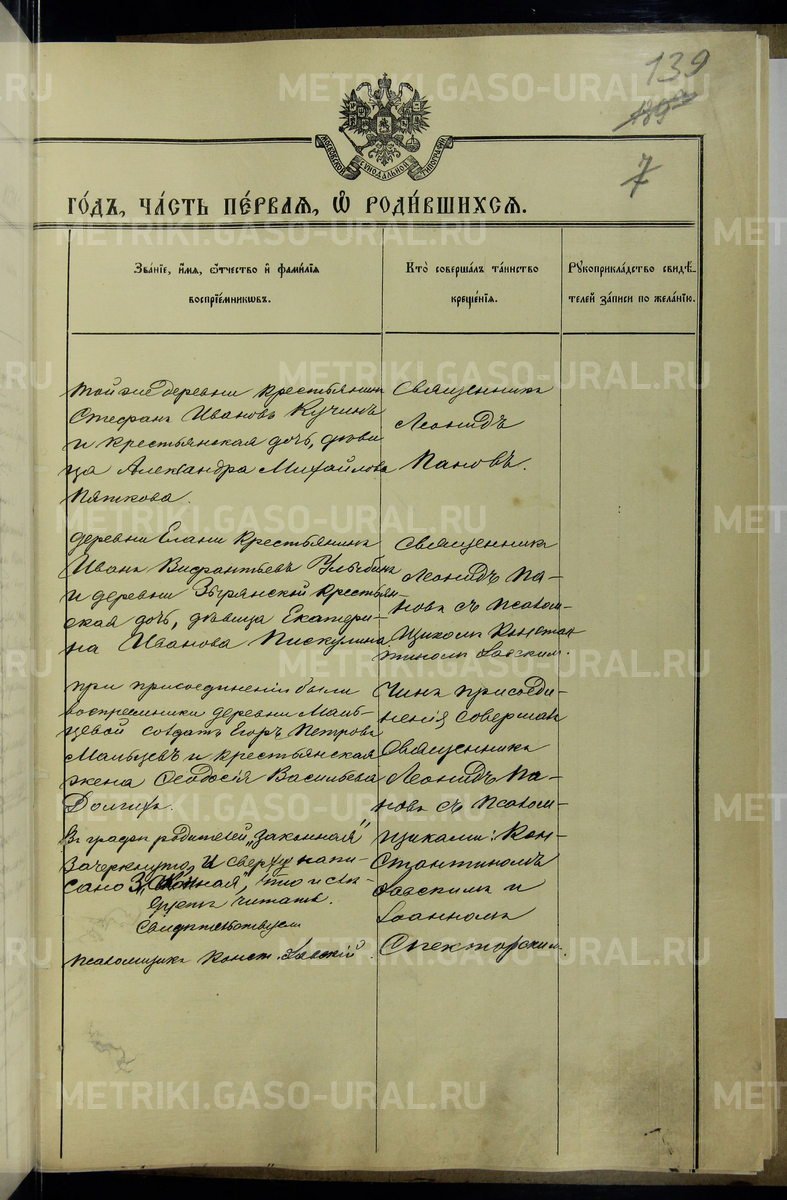 139
189
7
МОСКОВСКОЙ СѴНОДАЛЬНОЙ ТИПОГРАФІИ
ГО́ДЪ, ЧА́СТЬ ПЕ́РВАЯ, Ѡ҆ РОДИ́ВШИХСЯ.
Зва́ніе, и҆́мя, ѻ҆́тчество и҆ фами́лія
воспріе́мниковъ.
Кто̀ соверша́лъ та́инство
креще́нія.
Рꙋкоприкла́дство свидѣ́-
телей за́писи по жела́нію.
той же деревни крестьянинъ
Стефанъ Ивановъ Кучинъ
и крестьянская дочь, дѣви
ца Александра Михайлова
Пяткова.
Священникъ
Леонидъ
Пановъ.
деревни Елани крестьянинъ
Иванъ Ульыбинъ
и деревни Зырянской крестьян
ская дочь, дѣвица Екатери-
на Иванова Пискулина
Священникъ
Леонидъ Па-
новъ съ псалом-
щикомъ Констан
тиномъ
при присоединеніи были
воспріемники деревни Маль-
цевой солдатъ Егоръ Петровъ
Мальцевъ и крестьянская
жена Ѳеодосія Васильева
Долгихъ.
Чинъ присоеди-
ненія совершалъ
Священникъ
Леонидъ Па-
новъ съ псалом-
щиками: Кон-
стантиномъ
и
Іоанномъ
Въ графѣ родителей „законная"
зачеркнуто, и сверху напи-
сано что и слѣ-
дуетъ читать.
Свидѣтельствуетъ
Псаломщикъ Конст.
METRIKI.GASO-URAL.RU